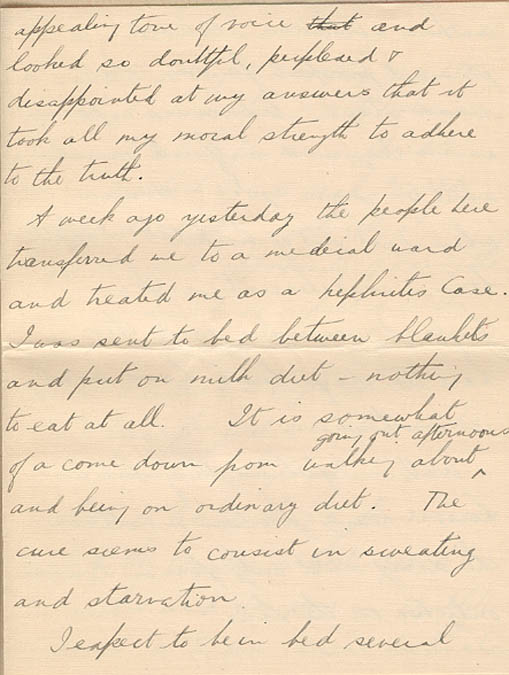 appealing tone of voice that and
looked so doubtful, perplexed &
disappointed at my answers that it
took all my moral strength to adhere
to the truth.
A week ago yesterday the people here
transferred me to a medical ward
and treated me as a nephritis case.
I was sent to bed between blankets
and put on milk diet - nothing
to eat at all. It is somewhat
going out afternoons
of a come down from walking about ^
and being on ordinary diet. The
cure seems to consist in sweating
and starvation.
I expect to be in bed several